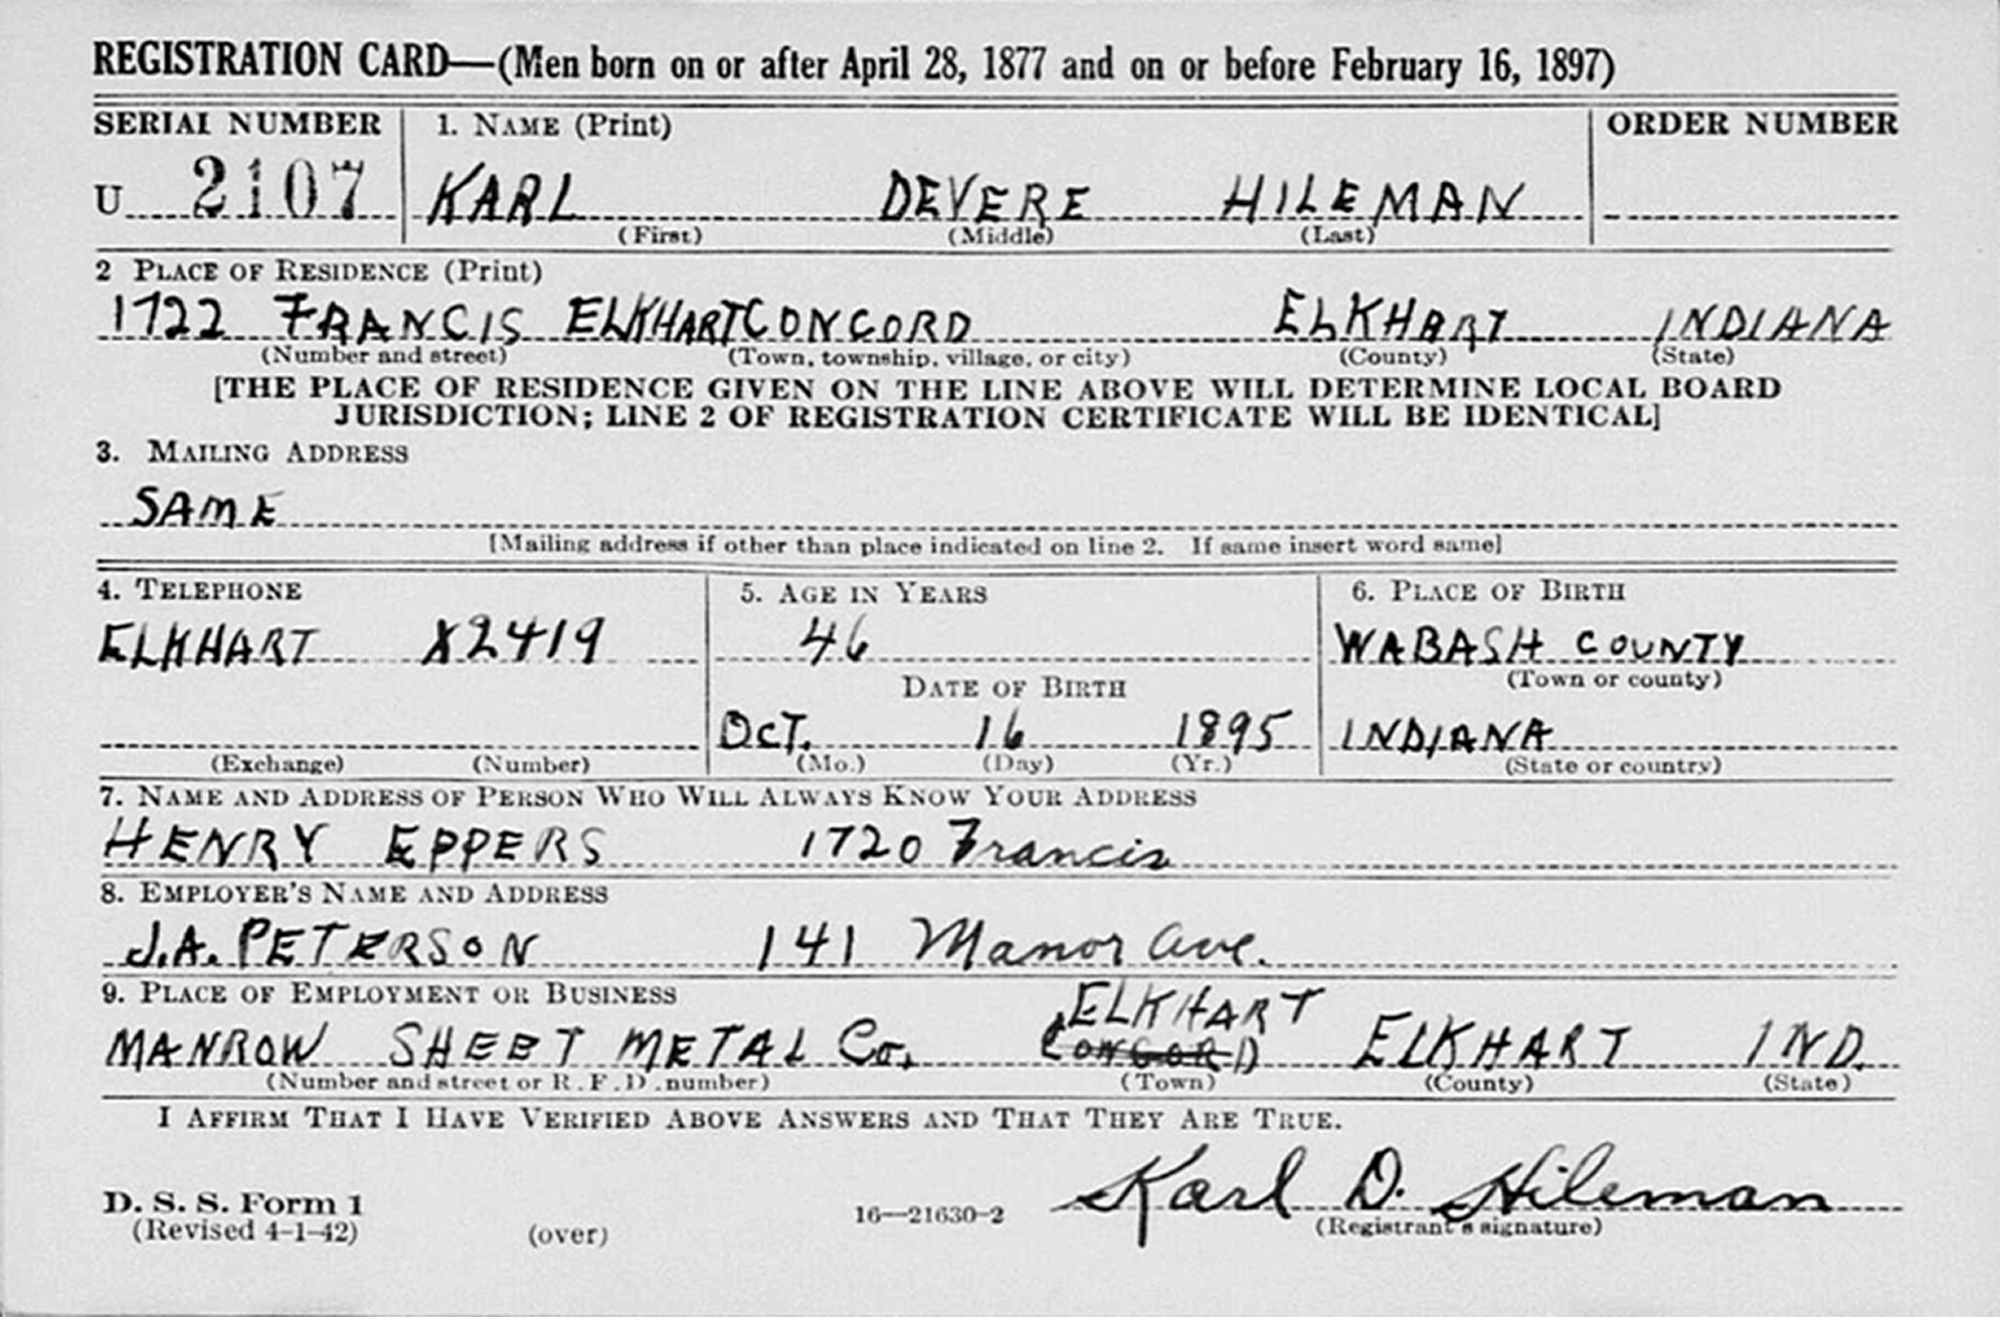 REGISTRATION CARD—(Men born on or after April 28, 1877 and on or before February 16, 1897)
SERIAL NUMBER 1. NAME (Print) ORDER NUMBER
U 2107 KARL DEVERE HILEMAN
(First) (Middle) (Last)
2 PLACE OF RESIDENCE (Print)
1722 FRANCIS ELKHART CONCORD ELKHART INDIANA
(Number and street) (Town, township, village, or city) (County) (State)
[THE PLACE OF RESIDENCE GIVEN ON THE LINE ABOVE WILL DETERMINE LOCAL BOARD
JURISDICTION; LINE 2 OF REGISTRATION CERTIFICATE WILL BE IDENTICAL]
3. MAILING ADDRESS
SAME
[Mailing address if other than place indicated on line 2. If same insert word same]
4. TELEPHONE 5. AGE IN YEARS 6. PLACE OF BIRTH
ELKHART X2419 46 WABASH COUNTY
(Town or county)
DATE OF BIRTH
OCT. 16 1895 INDIANA
(Exchange) (Number) (Mo.) (Day) (Yr.) (State or country)
7. NAME AND ADDRESS OF PERSON WHO WILL ALWAYS KNOW YOUR ADDRESS
HENRY EPPERS 1720 Francis
8. EMPLOYER'S NAME AND ADDRESS
J.A. PETERSON 141 Manor Ave.
9. PLACE OF EMPLOYMENT OR BUSINESS
ELKHART
MANROW SHEET METAL Co. CONCORD ELKHART IND.
(Number and street or R. F. D. number) (Town) (County) (State)
I AFFIRM THAT I HAVE VERIFIED ABOVE ANSWERS AND THAT THEY ARE TRUE.
Karl D. Hileman
D. S. S. Form 1
(Revised 4-1-42) (over) 16—21630-2 (Registrant's signature)